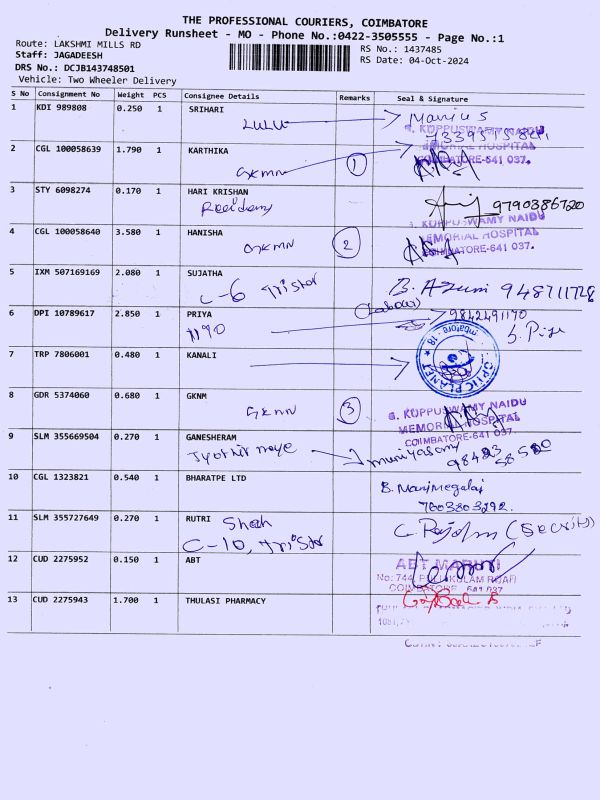 THE PROFESSIONAL COURIERS, COIMBATORE
Delivery Runsheet - MO - Phone No.:0422-3505555 - Page No.:1
Route: LAKSHMI MILLS RD
Staff: JAGADEESH
DRS No.: DCJB143748501
Vehicle: Two Wheeler Delivery
RS No.: 1437485
RS Date: 04-Oct-2024
S No Consignment No Weight PCS Consignee Details Remarks Seal & Signature
1 KDI 989808 0.250 1 SRIHARI
LULU Marius
G. KUPPUSWAMY NAIDU
MEMORIAL HOSPITAL
COIMBATORE-641 037.
2 CGL 100058639 1.790 1 KARTHIKA
GKMN 1
3 STY 6098274 0.170 1 HARI KRISHAN
9790386720
4 CGL 100058640 3.580 1 HANISHA
GKMN 2
G. KUPPUSWAMY NAIDU
MEMORIAL HOSPITAL
COIMBATORE-641 037.
5 IXM 507169169 2.080 1 SUJATHA
C-6 Tristar
6 DPI 10789617 2.850 1 PRIYA
1190 9842491170
7 TRP 7806001 0.480 1 KANALI
OPTIC PLANET
8 GDR 5374060 0.680 1 GKNM
GKNN 3
G. KUPPUSWAMY NAIDU
MEMORIAL HOSPITAL
COIMBATORE-641 037.
9 SLM 355669504 0.270 1 GANESHERAM
muniyasamy
10 CGL 1323821 0.540 1 BHARATPE LTD
B. Manimegalai
11 SLM 355727649 0.270 1 RUTRI Shah
C-10, Tristar
(Security)
12 CUD 2275952 0.150 1 ABT
ABT MARUTI
No: 744, PULIAKULAM ROAD
COIMBATORE 641 037
13 CUD 2275943 1.700 1 THULASI PHARMACY